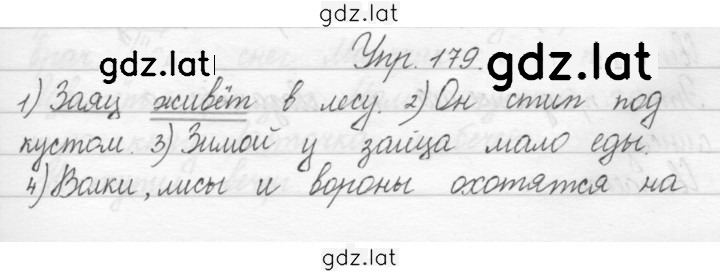 gdz.lat
gdz.lat Упр. 179. gdz.lat
1) Заяц живёт в лесу. 2) Он спит под
кустом. 3) Зимой у зайца мало еды.
4) Волки, лисы и вороны охотятся на
gdz.lat